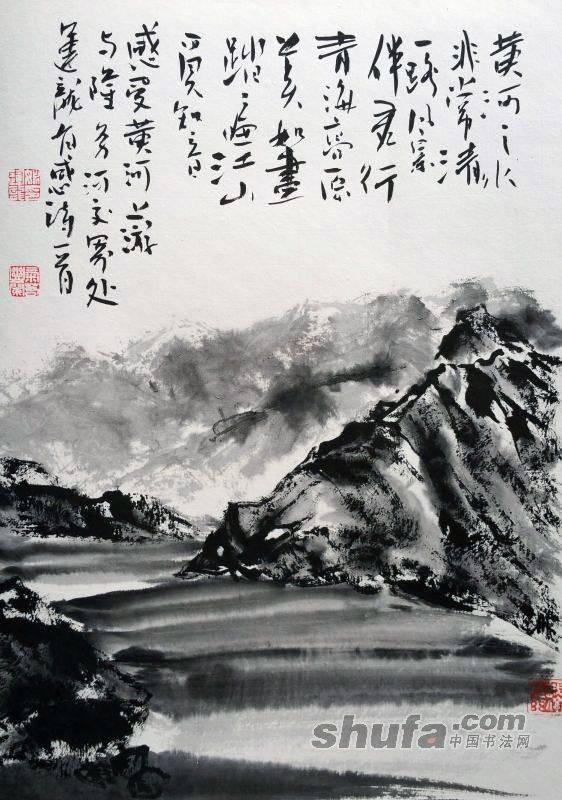 黄河之水
非常清
一路风景
伴君行
青海高原
美如畫
踏遍江山
觅知音
感受黄河上游
与隆务河交界处
有感诗一首
shufa.com
中国书法网